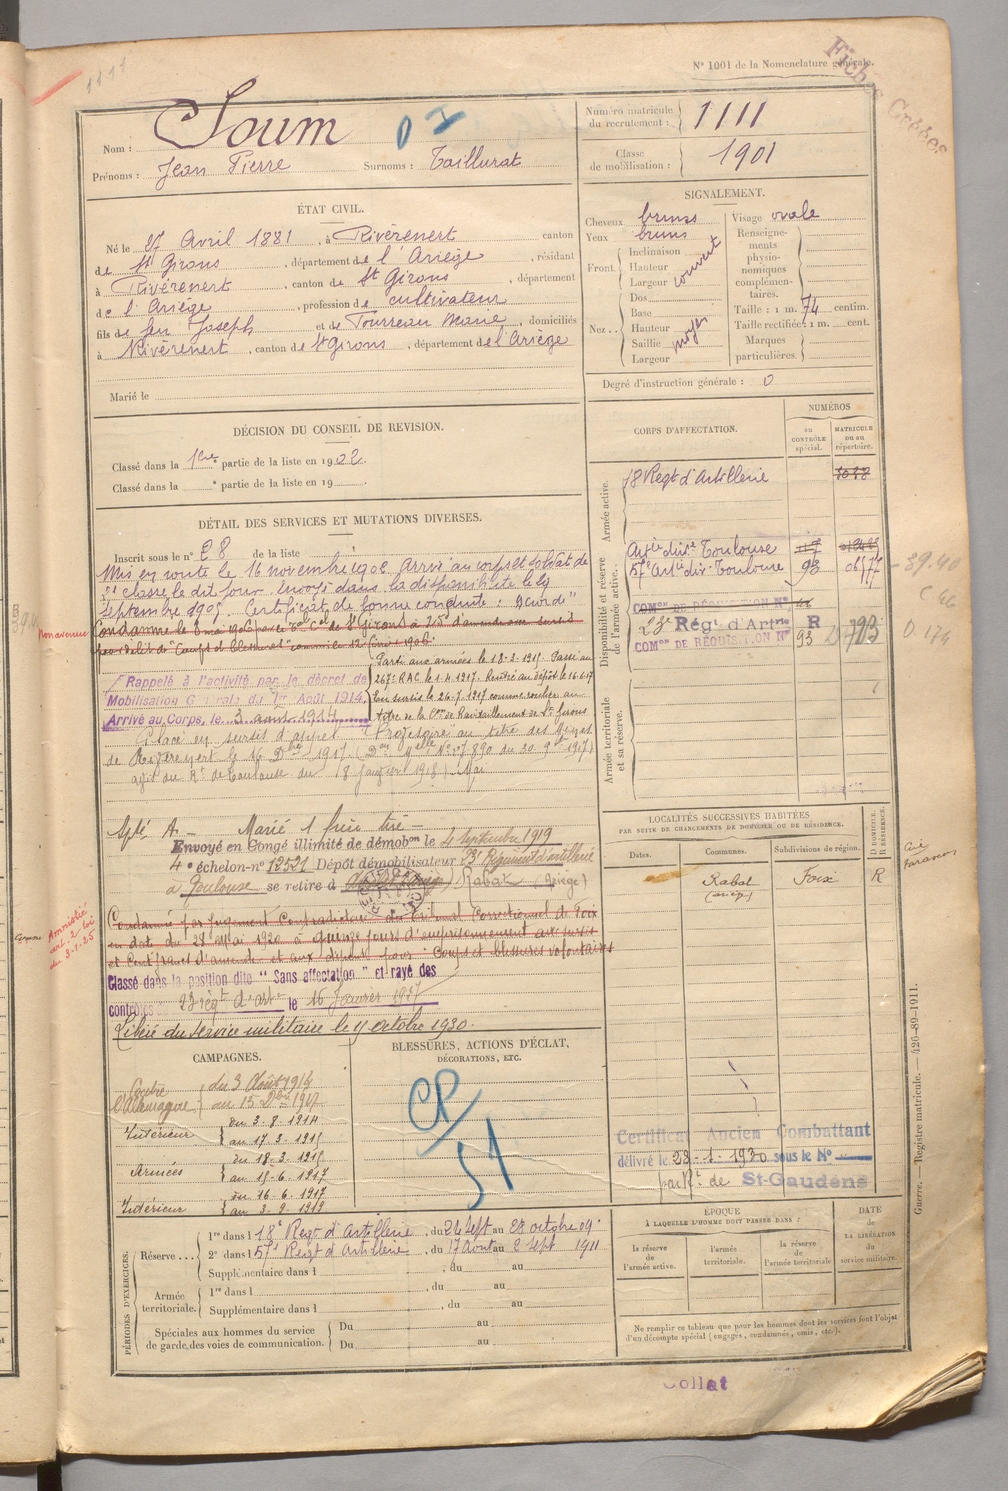 1111
N° 1001 de la Nomenclature générale.
Nom : Soum
Prénoms : Jean Pierre Surnoms : Taillurat
Numéro matricule du recrutement : 1111
Classe de mobilisation : 1901
ÉTAT CIVIL.
Né le 27 Avril 1881, à Rivèrenert canton
de St Girons, département de l'Ariège, résidant
à Rivèrenert, canton de St Girons, département
de l'Ariège, profession de cultivateur
fils de feu Joseph et de Tourreau Marie, domiciliés
à Rivèrenert, canton de St Girons, département de l'Ariège
Marié le
SIGNALEMENT.
Cheveux bruns
Yeux bruns
Front. Inclinaison
Hauteur
Largeur couvert
Nez. Dos
Base
Hauteur
Saillie moyen
Largeur
Visage ovale
Renseignements physionomiques complémentaires.
Taille : 1 m. 74 centim.
Taille rectifiée : 1 m. cent.
Marques particulières.
Degré d'instruction générale : 0
DÉCISION DU CONSEIL DE REVISION.
Classé dans la 1ère partie de la liste en 1902.
Classé dans la e partie de la liste en 19
CORPS D'AFFECTATION.
NUMÉROS
au CONTRÔLE spécial.
MATRICULE ou au répertoire.
Armée active.
18 Regt d'Artillerie
Disponibilité et réserve de l'armée active.
Artie divre Toulouse
57e Artie div. Toulouse 93
COMon DE RÉQUISITION N°
23e Régt d'Artrie R
COMon DE RÉQUISITION N° 93
Armée territoriale et sa réserve.
DÉTAIL DES SERVICES ET MUTATIONS DIVERSES.
Inscrit sous le n° 28 de la liste
Mis en route le 16 novembre 1902. Arrivé au corps et soldat de
2e classe le dit jour. Envoyé dans la disponibilité le
Septembre 1905. Certificat de bonne conduite : Accordé
Condamné le 8 mai 1906 par le Tal Cel de St Girons à 25f d'amende avec sursis
pour délit de "Coups et blessures" commis le 12 février 1906.
Rappelé à l'activité par le décret de
Mobilisation Générale du 1er Août 1914.
Arrivé au Corps, le 3 août 1914
Parti aux armées le 18-3-1915. Passé au
267e RAC le 1-4-1917. Rentré au dépôt le 16-6-17
En sursis le 26-7-1917 comme
titre de la Con de Ravitaillement de St Girons
Placé en sursis d'appel
de Rivèrenert le 16 Dbre 1917
Affté A – Marié 1 frère tué –
Envoyé en Congé illimité de démobon le 4 Septembre 1919
4e échelon-n° 12521 Dépôt démobilisateur 23e Régiment d'artillerie
à Toulouse se retire à Rabat (Ariège)
Condamné par Jugement Contradictoire du Tribunal Correctionnel de Foix
en date du 28 mai 1920 à quinze jours d'emprisonnement avec sursis
et Cent francs d'amende et aux dépens pour Coups et blessures volontaires
Amnistié art. 2 loi du 3-1-25
Classé dans la position dite "Sans affectation" et rayé des
contrôles 23 régt d'artie le 16 Janvier 1927
Libéré du service militaire le 4 octobre 1930.
LOCALITÉS SUCCESSIVES HABITÉES
PAR SUITE DE CHANGEMENTS DE DOMICILE OU DE RÉSIDENCE.
Dates. Communes. Subdivisions de région. D DOMICILE. R RÉSIDENCE.
Rabat (ariège) Foix R
Certificat Ancien Combattant
délivré le 23-1-1930 sous le N°
par Rt de St-Gaudens
CAMPAGNES.
Contre l'Allemagne du 3 Août 1914
au 15 Dbre 1917
Intérieur du 3-8-1914
au 17-3-1915
Armées du 18-3-1915
au 15-6-1917
Intérieur du 16-6-1917
au 3-9-1919
BLESSURES, ACTIONS D'ÉCLAT,
DÉCORATIONS, ETC.
CP
51
PÉRIODES D'EXERCICES.
Réserve... 1re dans l 18e Regt d'Artillerie, du 24 Sept au 28 octobre 09.
2e dans l 57e Regt d'Artillerie, du 17 Aout au 2 Sept 1911
Supplémentaire dans l , du au
Armée territoriale. 1re dans l , du au
Supplémentaire dans l , du au
Spéciales aux hommes du service de garde des voies de communication. Du au
Du au
ÉPOQUE
À LAQUELLE L'HOMME DOIT PASSER DANS :
la réserve de l'armée active.
l'armée territoriale.
la réserve de l'armée territoriale
DATE de LA LIBÉRATION du service militaire.
Ne remplir ce tableau que pour les hommes dont les services font l'objet
d'un décompte spécial (engagés, condamnés, omis, etc.).
Guerre. — Registre matricule. — 426-89-1911.
Collat